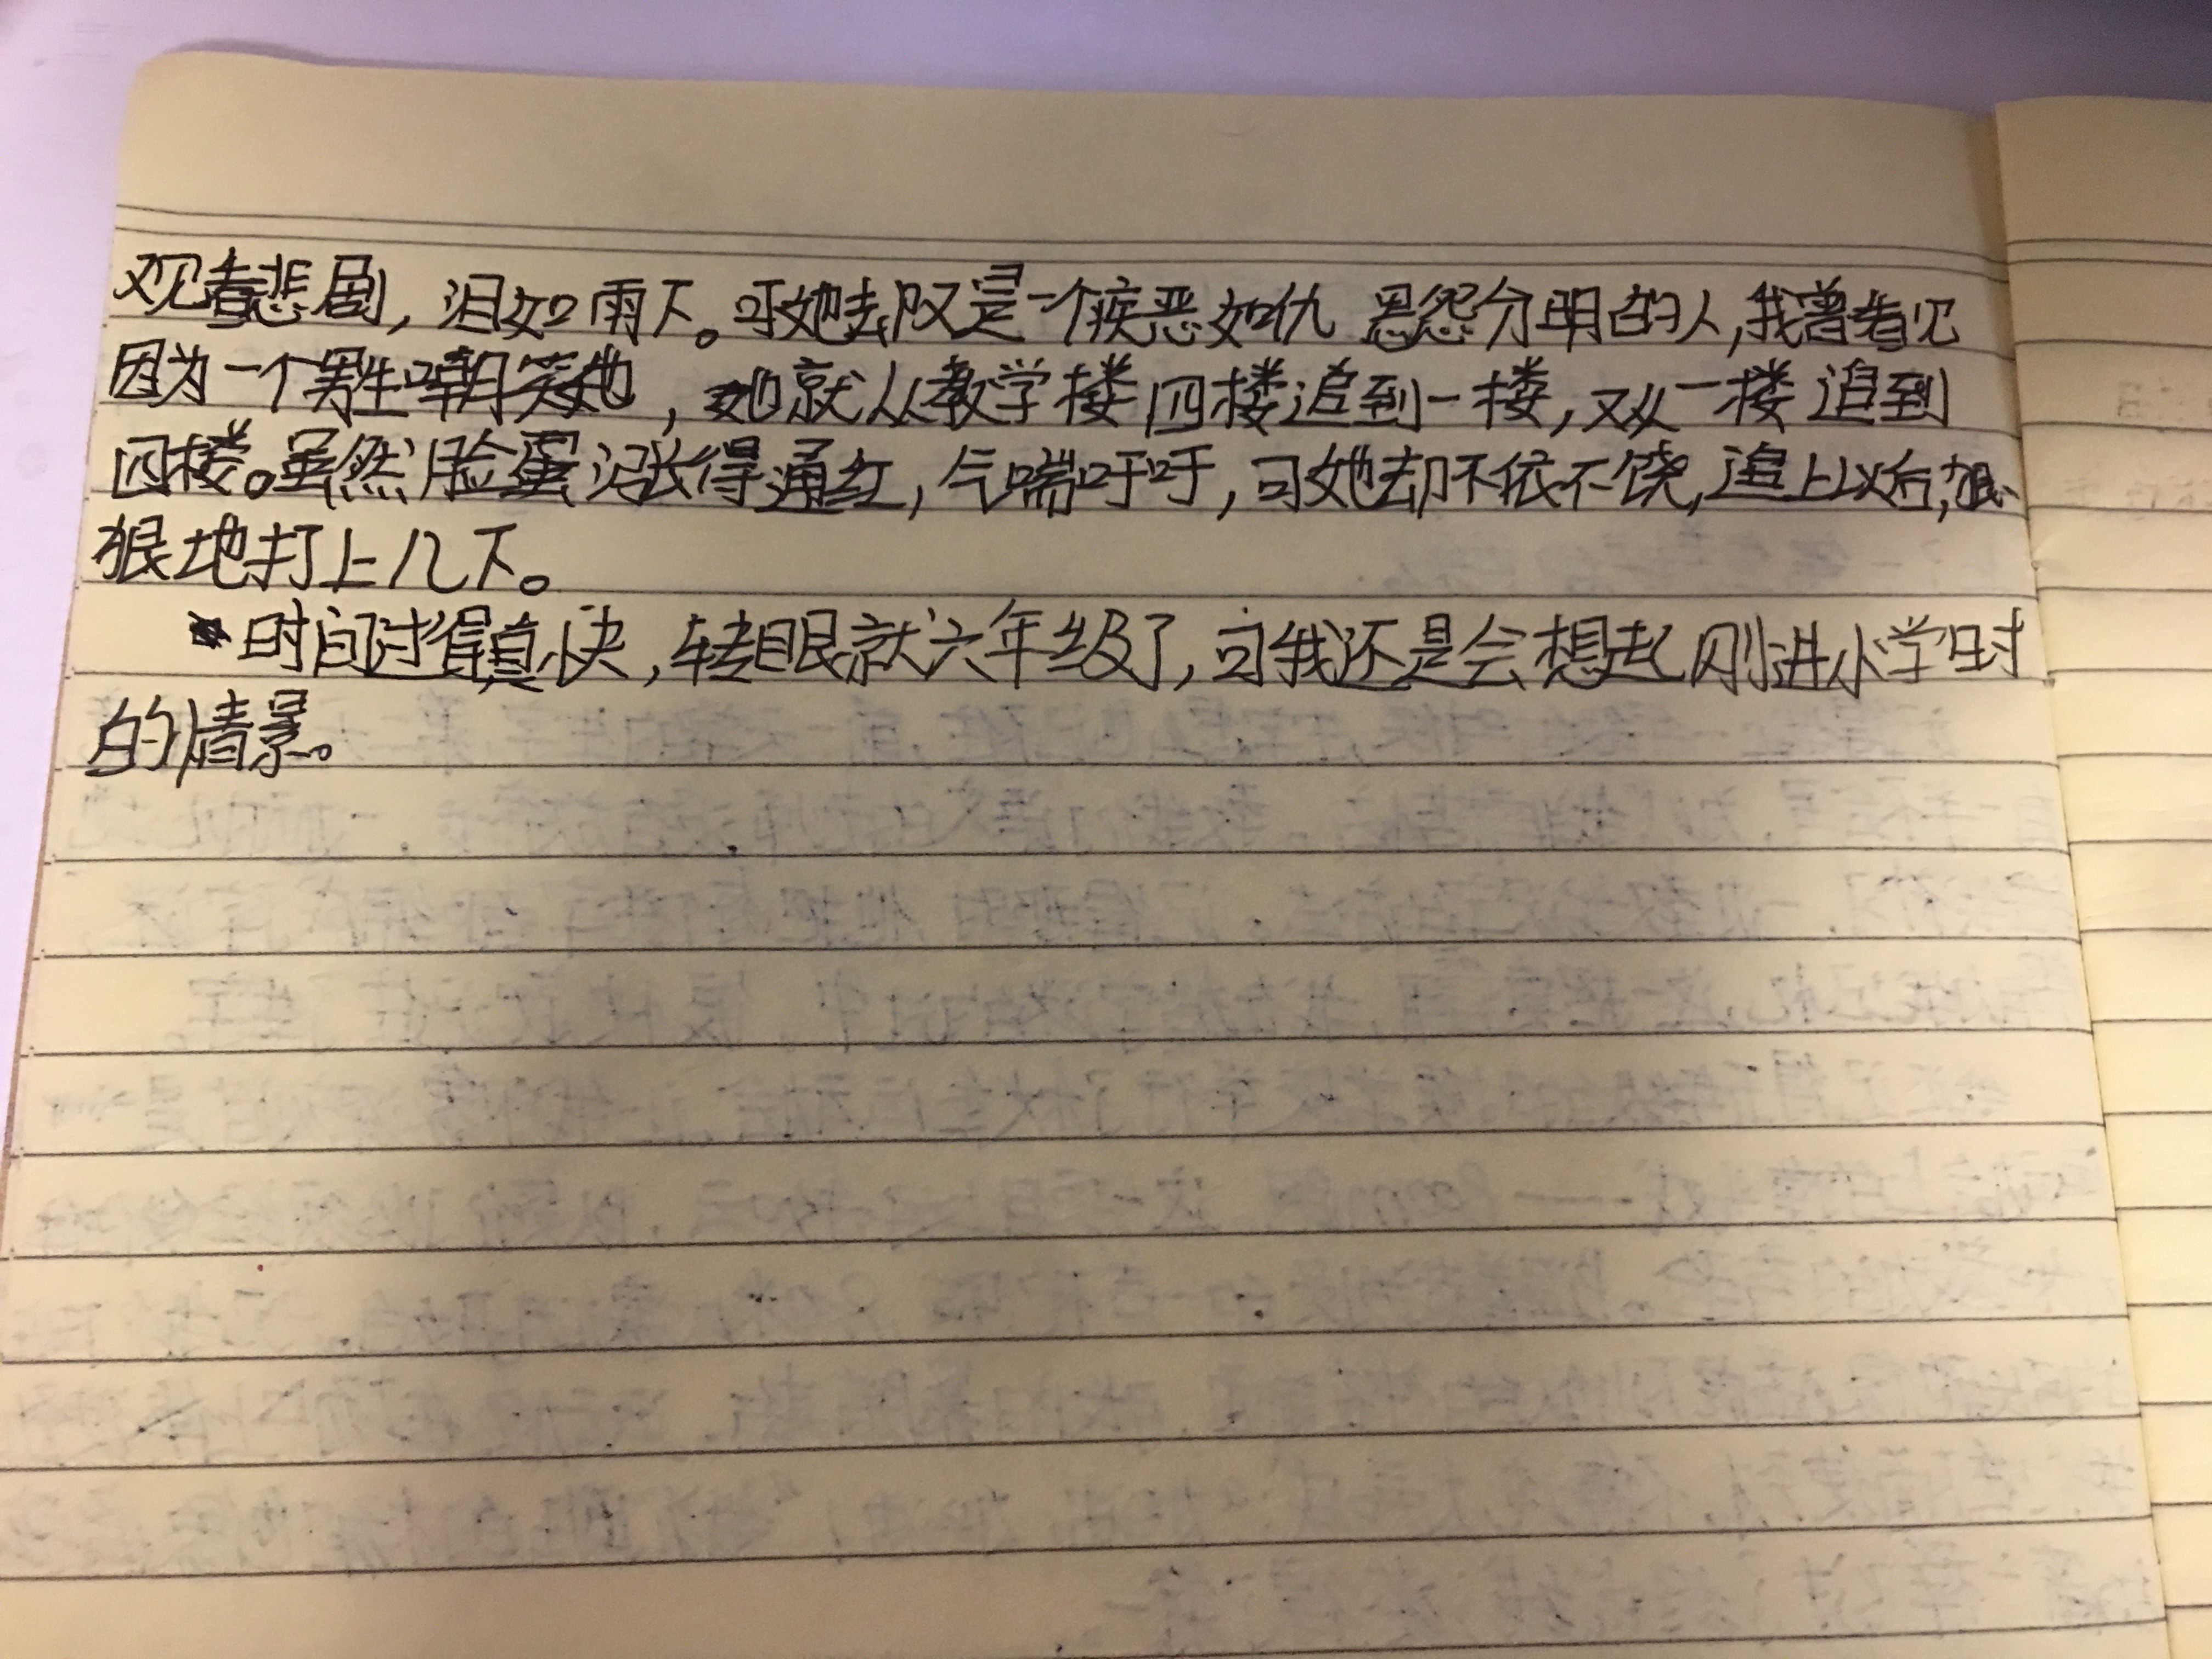 观看悲剧，泪如雨下。可她却又是一个疾恶如仇 恩怨分明的人，我曾看见
因为一个男生嘲笑她，她就从教学楼四楼追到一楼，又从一楼追到
四楼。虽然脸蛋涨得通红，气喘吁吁，可她却不依不饶，追上以后，狠
狠地打上几下。
时间过得真快，转眼就六年级了，可我还是会想起刚进小学时
的情景。